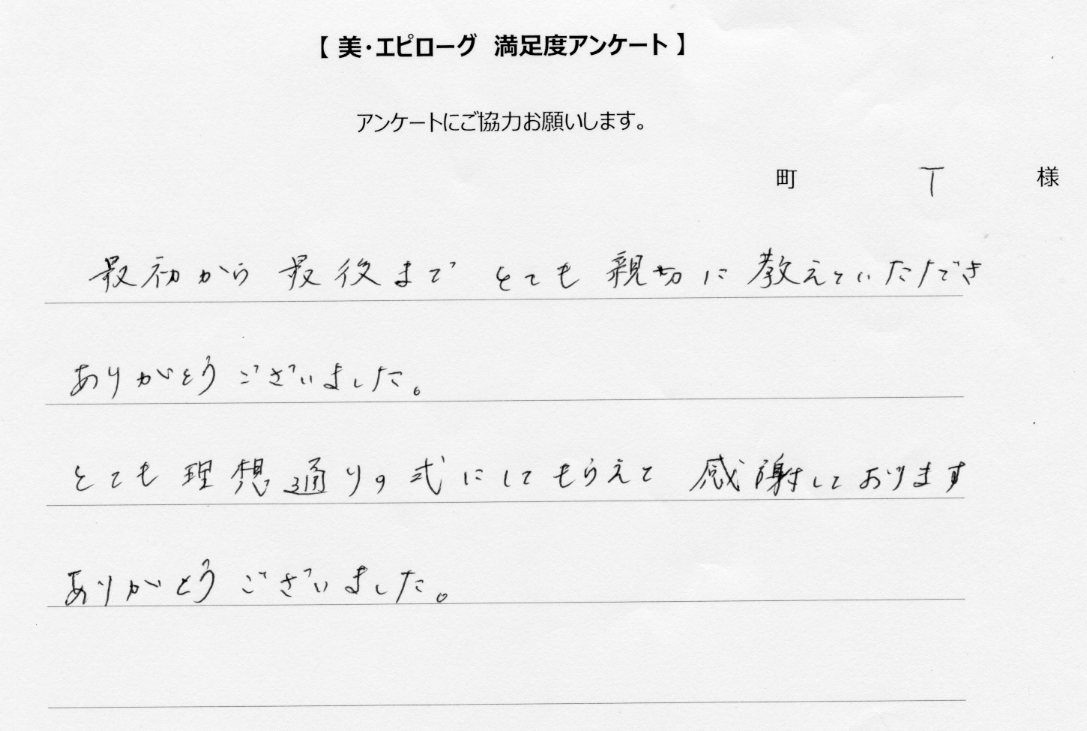 【 美・エピローグ 満足度アンケート 】
アンケートにご協力お願いします。
町 T 様
最初から最後まで とても親切に教えていただき
ありがとうございました。
とても理想通りの式にしてもらえて 感謝しております
ありがとうございました。